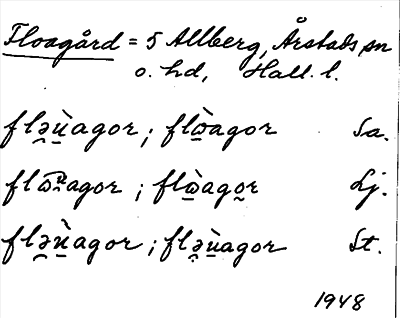 Floagård = 5 Allberg, Årstads sn
o. hd, Hall. l.
flə̯ṳ̀agor ; flὼ̱agor Sa.
flω͡u̱agor ; flὼ̱ago̱r Lj.
flə̯ṳ̀agor ; flə̯ṳ̀agor St.
1948